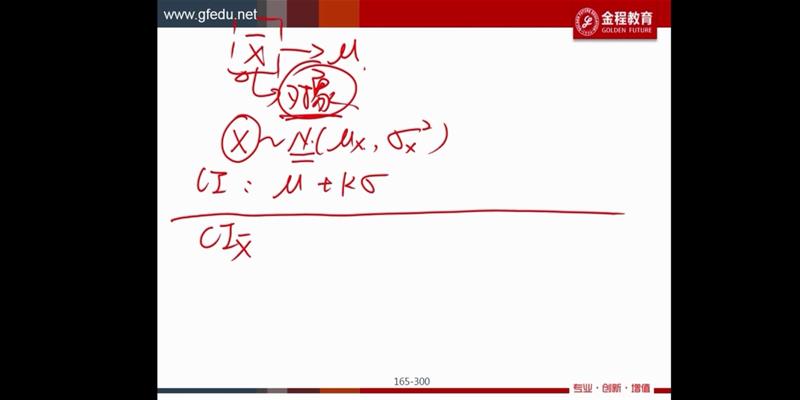 www.gfedu.net
金程教育
GOLDEN FUTURE
X̄ → μ
对象
X ~ N(μx, σx²)
CI : μ ± kσ
CI x̄
165-300
专业·创新·增值